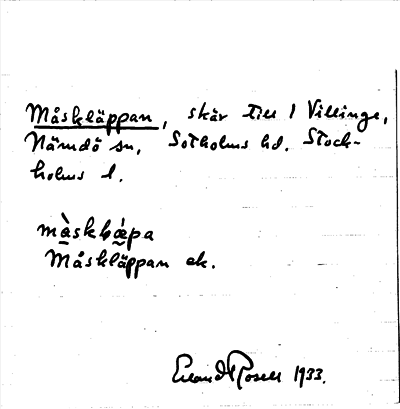 Måskläppan, skär till 1 Villinge,
Nämdö sn, Sotholms hd. Stock-
holms l.
Måskläppan ek.
Erland Rosell 1933.